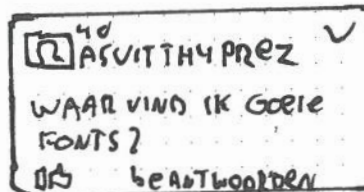 4d
ASVITTH4PREZ
WAAR VIND IK GOEIE
FONTS?
beANTWOORDEN